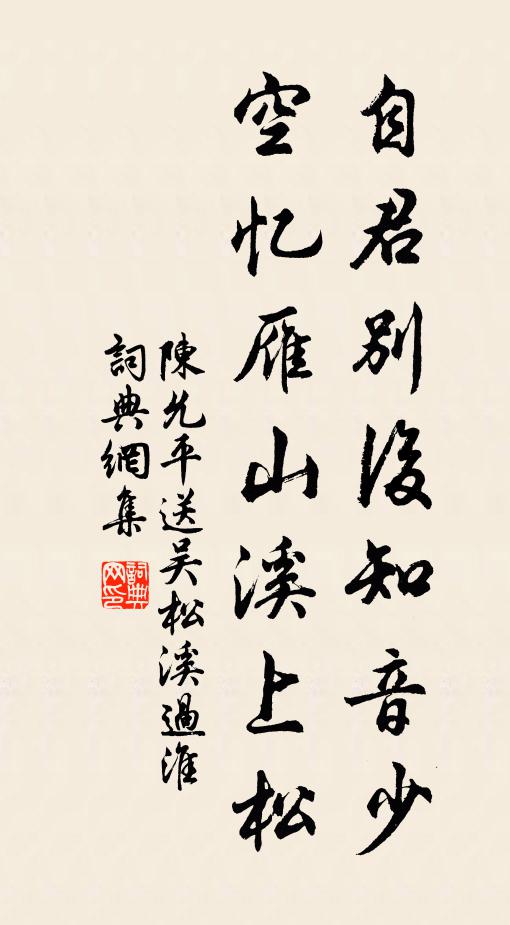 自君別後知音少
空忆雁山溪上松
陳允平送吴松溪過淮
詞典網集
詞典
网印